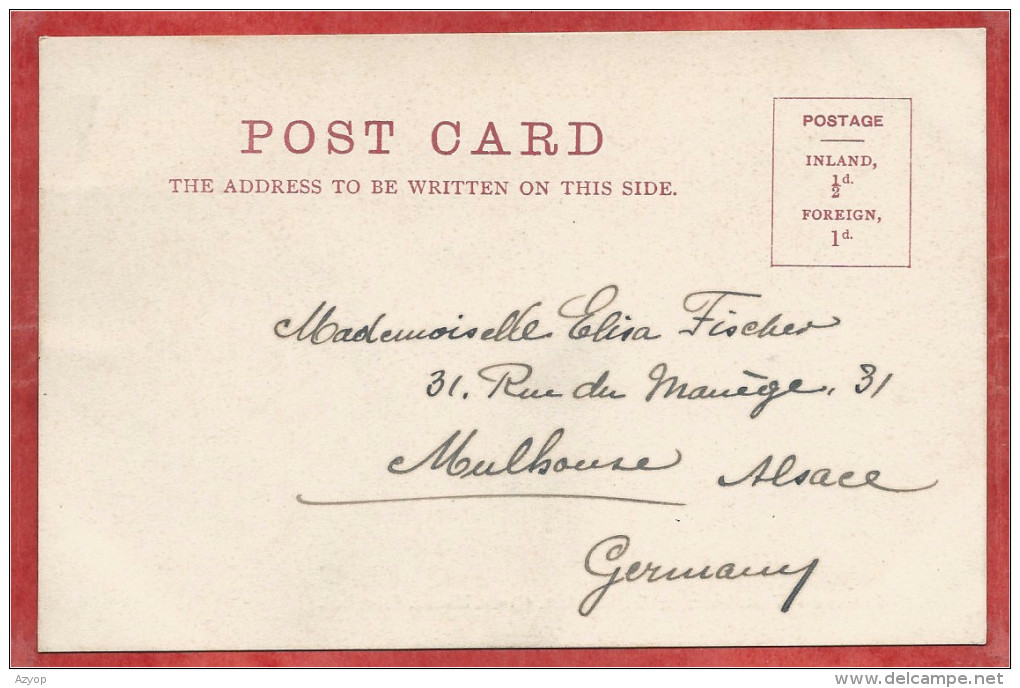 POST CARD
THE ADDRESS TO BE WRITTEN ON THIS SIDE.
POSTAGE
INLAND,
½d.
FOREIGN,
1d.
Mademoiselle Elisa Fischer
31. Rue du Manège. 31
Mulhouse Alsace
Germany
Azyop
delcampe.net